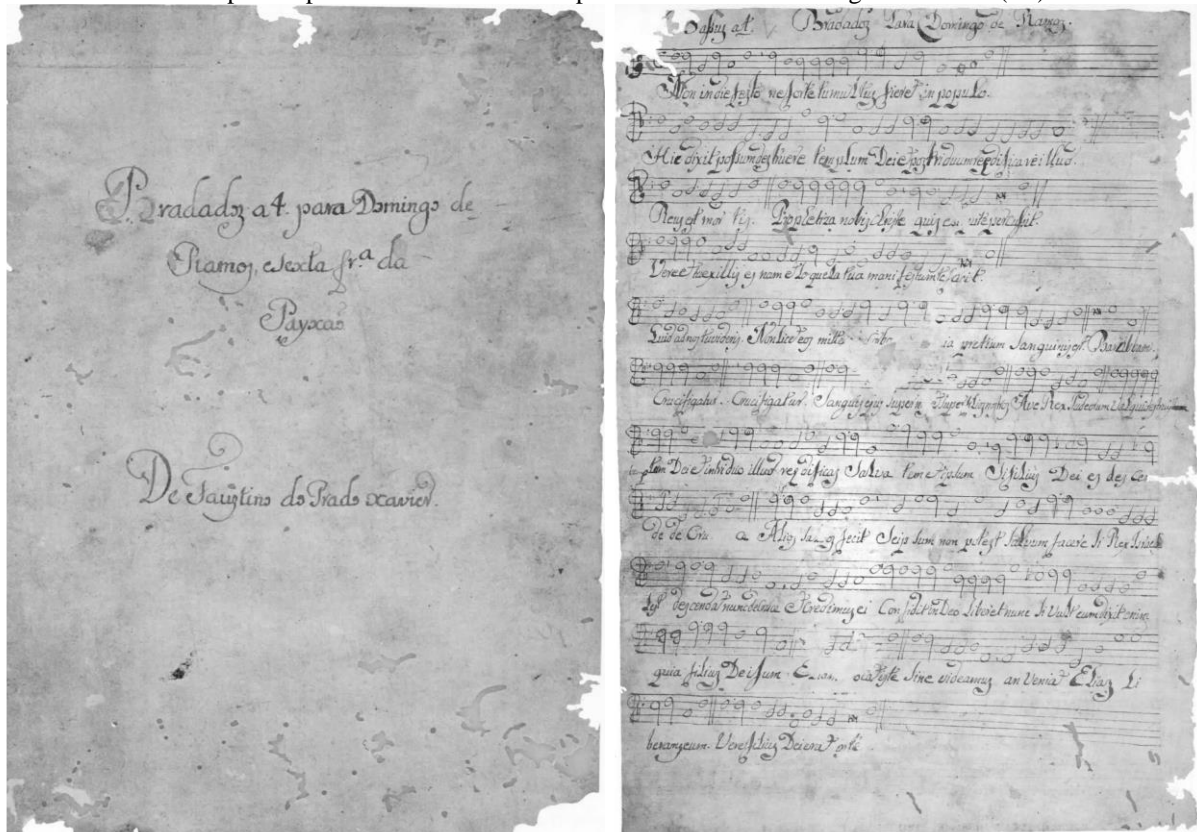 Bradados a 4. para Domingo de
Ramos, e sexta fr.ª da
Payxaõ
De Faustino do Prado xavier.
Bassus a 4. Bradados Para Domingo de Ramos.
Non in die festo ne forte tumultus fieret in populo.
Hic dixit possum destruere templum Dei et post triduum reedificare illud.
Reus est mor tis. Prophetiza nobis christe quis est te percussit.
Vere et tu ex illis es nam et loquela tua manifestum te facit.
Quid ad nos tu videris. Non licet eos mitte ia pretium sanguinis est. Barabbam.
Crucifigatur. Crucifigatur. Sanguis ejus super nos et super filios nostros Ave Rex Judeorum
plum Dei et in triduo illud reedificas Salva temetipsum Si filius Dei es des cen
de de Cru Alios sa fecit Seipsum non potest salvum facere Si Rex Israel
est descendat nunc de cruce et credimus ei Confidit in Deo liberet nunc si vult eum dixit enim
quia filius Dei sum. iste Sine videamus an veniat Elias li
berans eum. Vere filius Dei erat iste